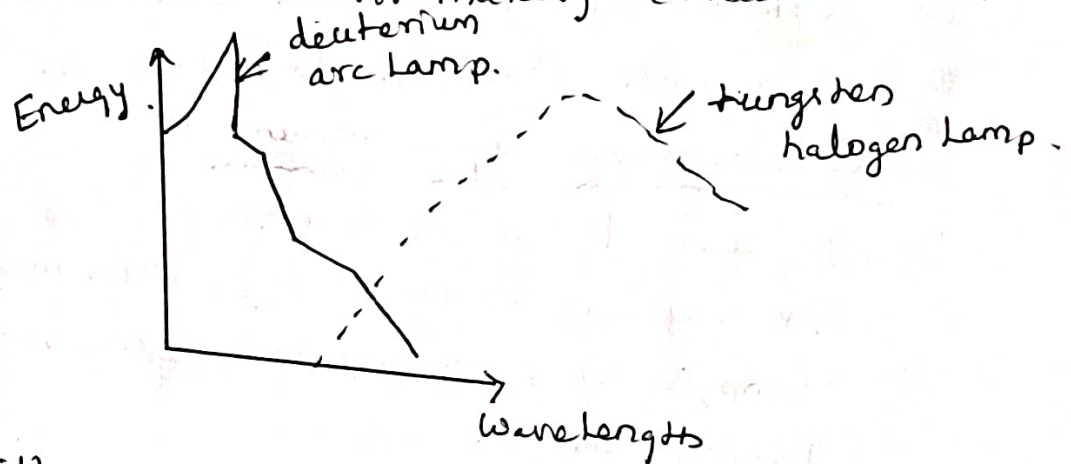 deuterium
arc Lamp.
Energy.
tungsten
halogen Lamp.
Wavelength